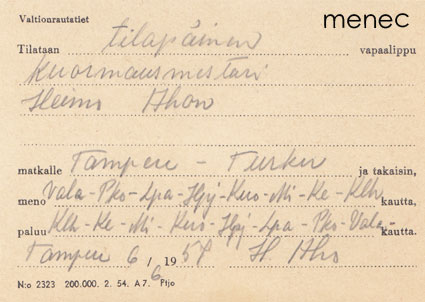 Valtionrautatiet
menec
Tilataan tilapäinen vapaalippu
Kuormausmestari
Heimo Ahon
matkalle Tampere - Turku ja takaisin,
meno Vala-Pko-Lpa-Hpj-Kuo-Mi-Ke-Klh kautta,
paluu Klh-Ke-Mi-Kuo-Hpj-Lpa-Pko-Vala- kautta.
Tampere 6/6 1957 H. Aho
N:o 2323 200.000. 2. 54. A 7. Ptjo